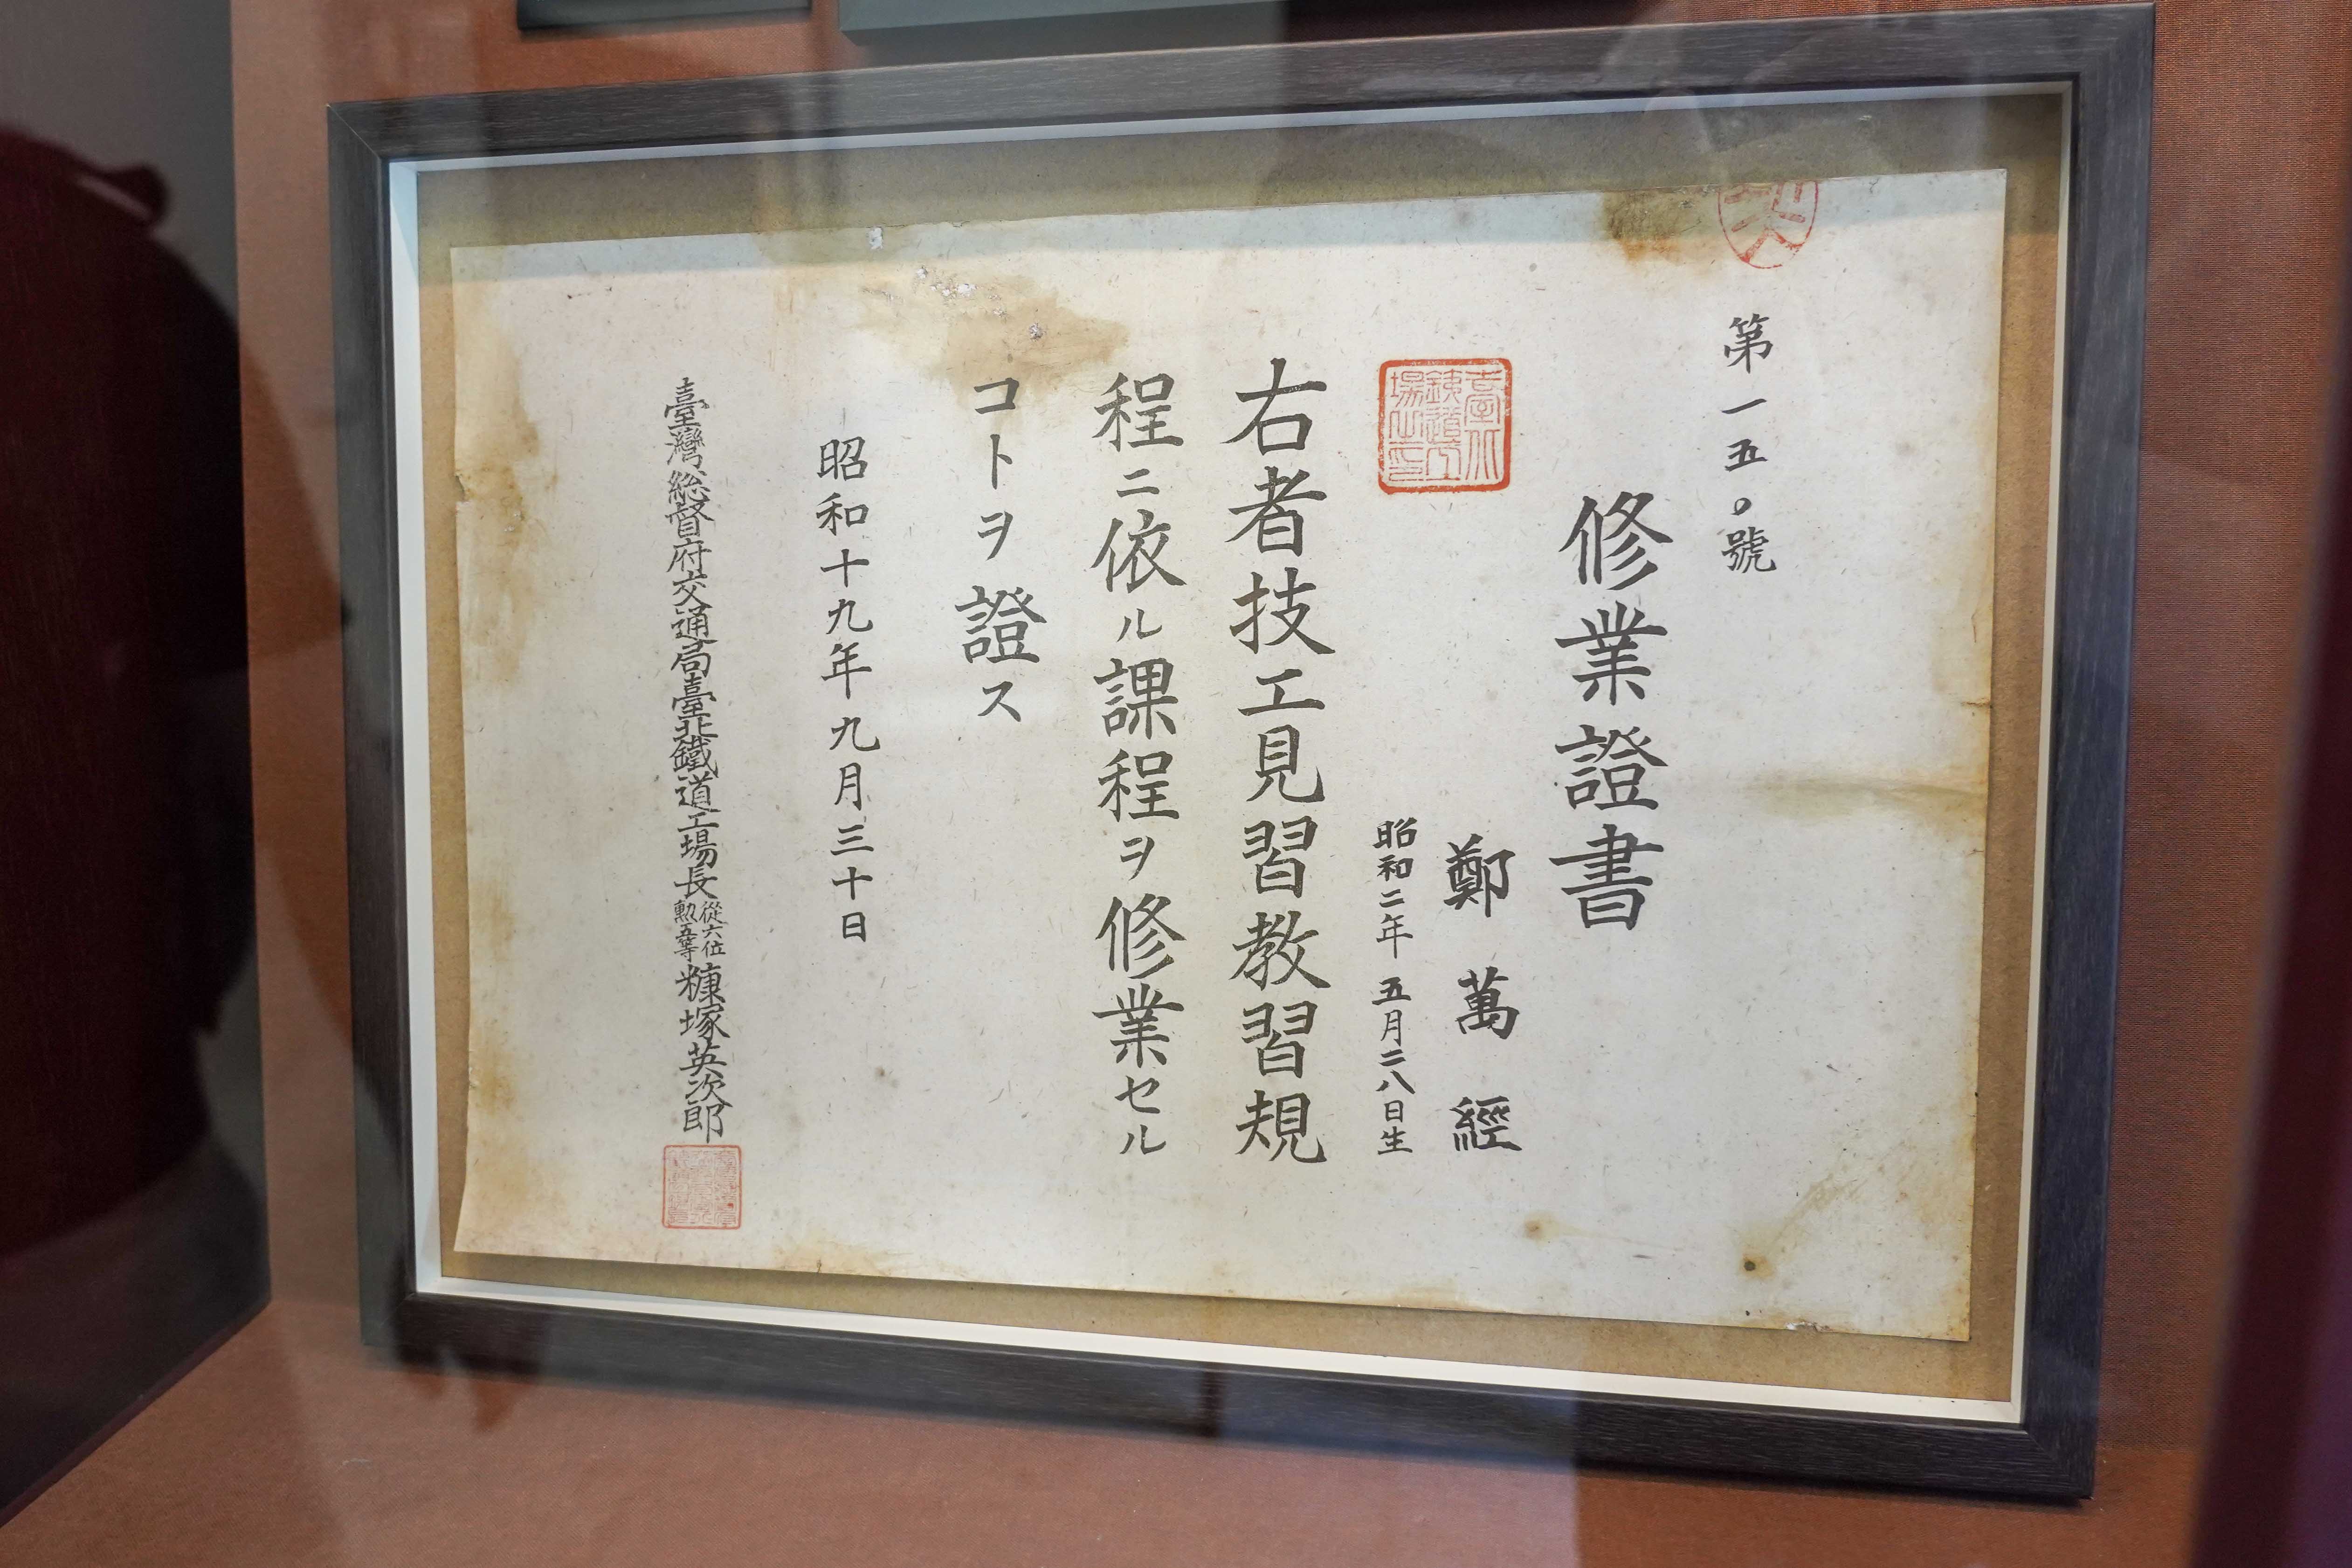 第一五〇號
修業證書
鄭萬經
昭和二年五月二八日生
右者技工見習教習規
程ニ依ル課程ヲ修業セル
コトヲ證ス
昭和十九年九月三十日
臺灣総督府交通局臺北鐵道工場長 從六位 勲五等 糠塚英次郎
臺北鐵道工場之印